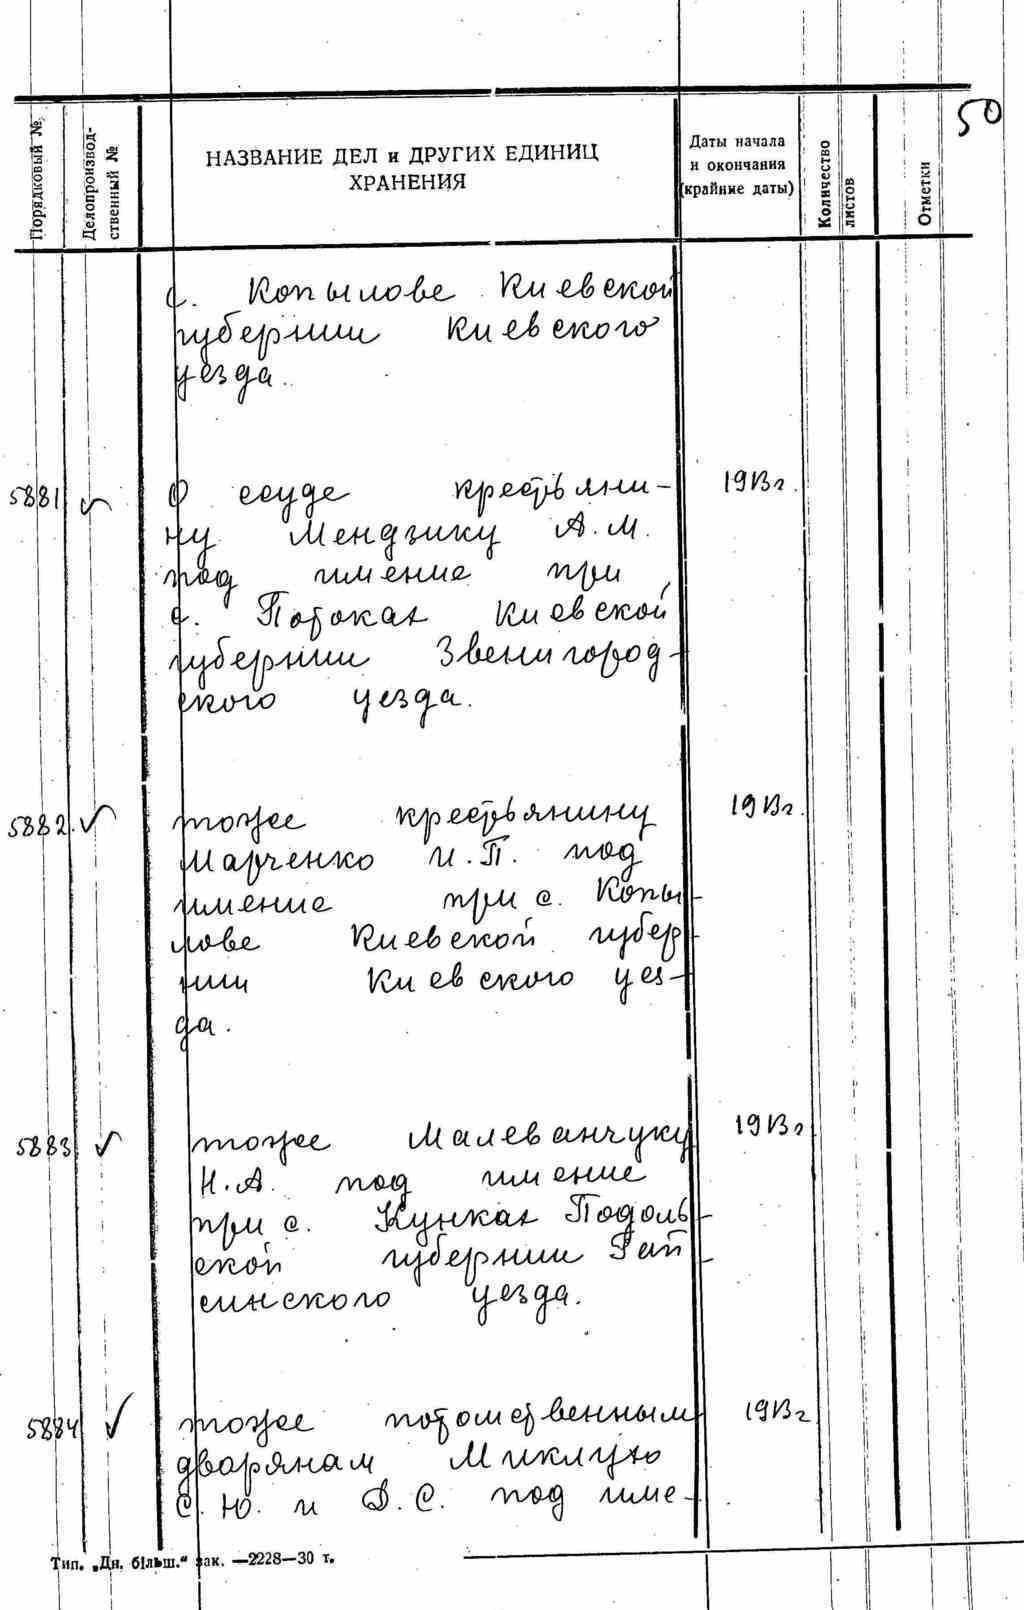 50
Порядковый №
Делопроизвод-
ственный №
НАЗВАНИЕ ДЕЛ и ДРУГИХ ЕДИНИЦ
ХРАНЕНИЯ
Даты начала
и окончания
(крайние даты)
Количество
листов
Отметки
с. Копылове Киевской
губернии Киевского
уезда.
5881 О ссуде крестьяни- 1913г.
ну Мендзику А.М.
под имение при
с. Потоках Киевской
губернии Звенигород-
ского уезда.
5882. тоже крестьянину 1913г.
Марченко И.П. под
имение при с. Копы-
лове Киевской губер-
нии Киевского уез-
да.
5883 тоже Малеванчуку 1913г
Н.А. под имение
при с. Кунках Подоль-
ской губернии Гай-
синского уезда.
5884 тоже потомственным 1913г
дворянам Миклухо
С.Ю. и Д.С. под име-
Тип. „Дн. більш.“ зак. —2228—30 т.